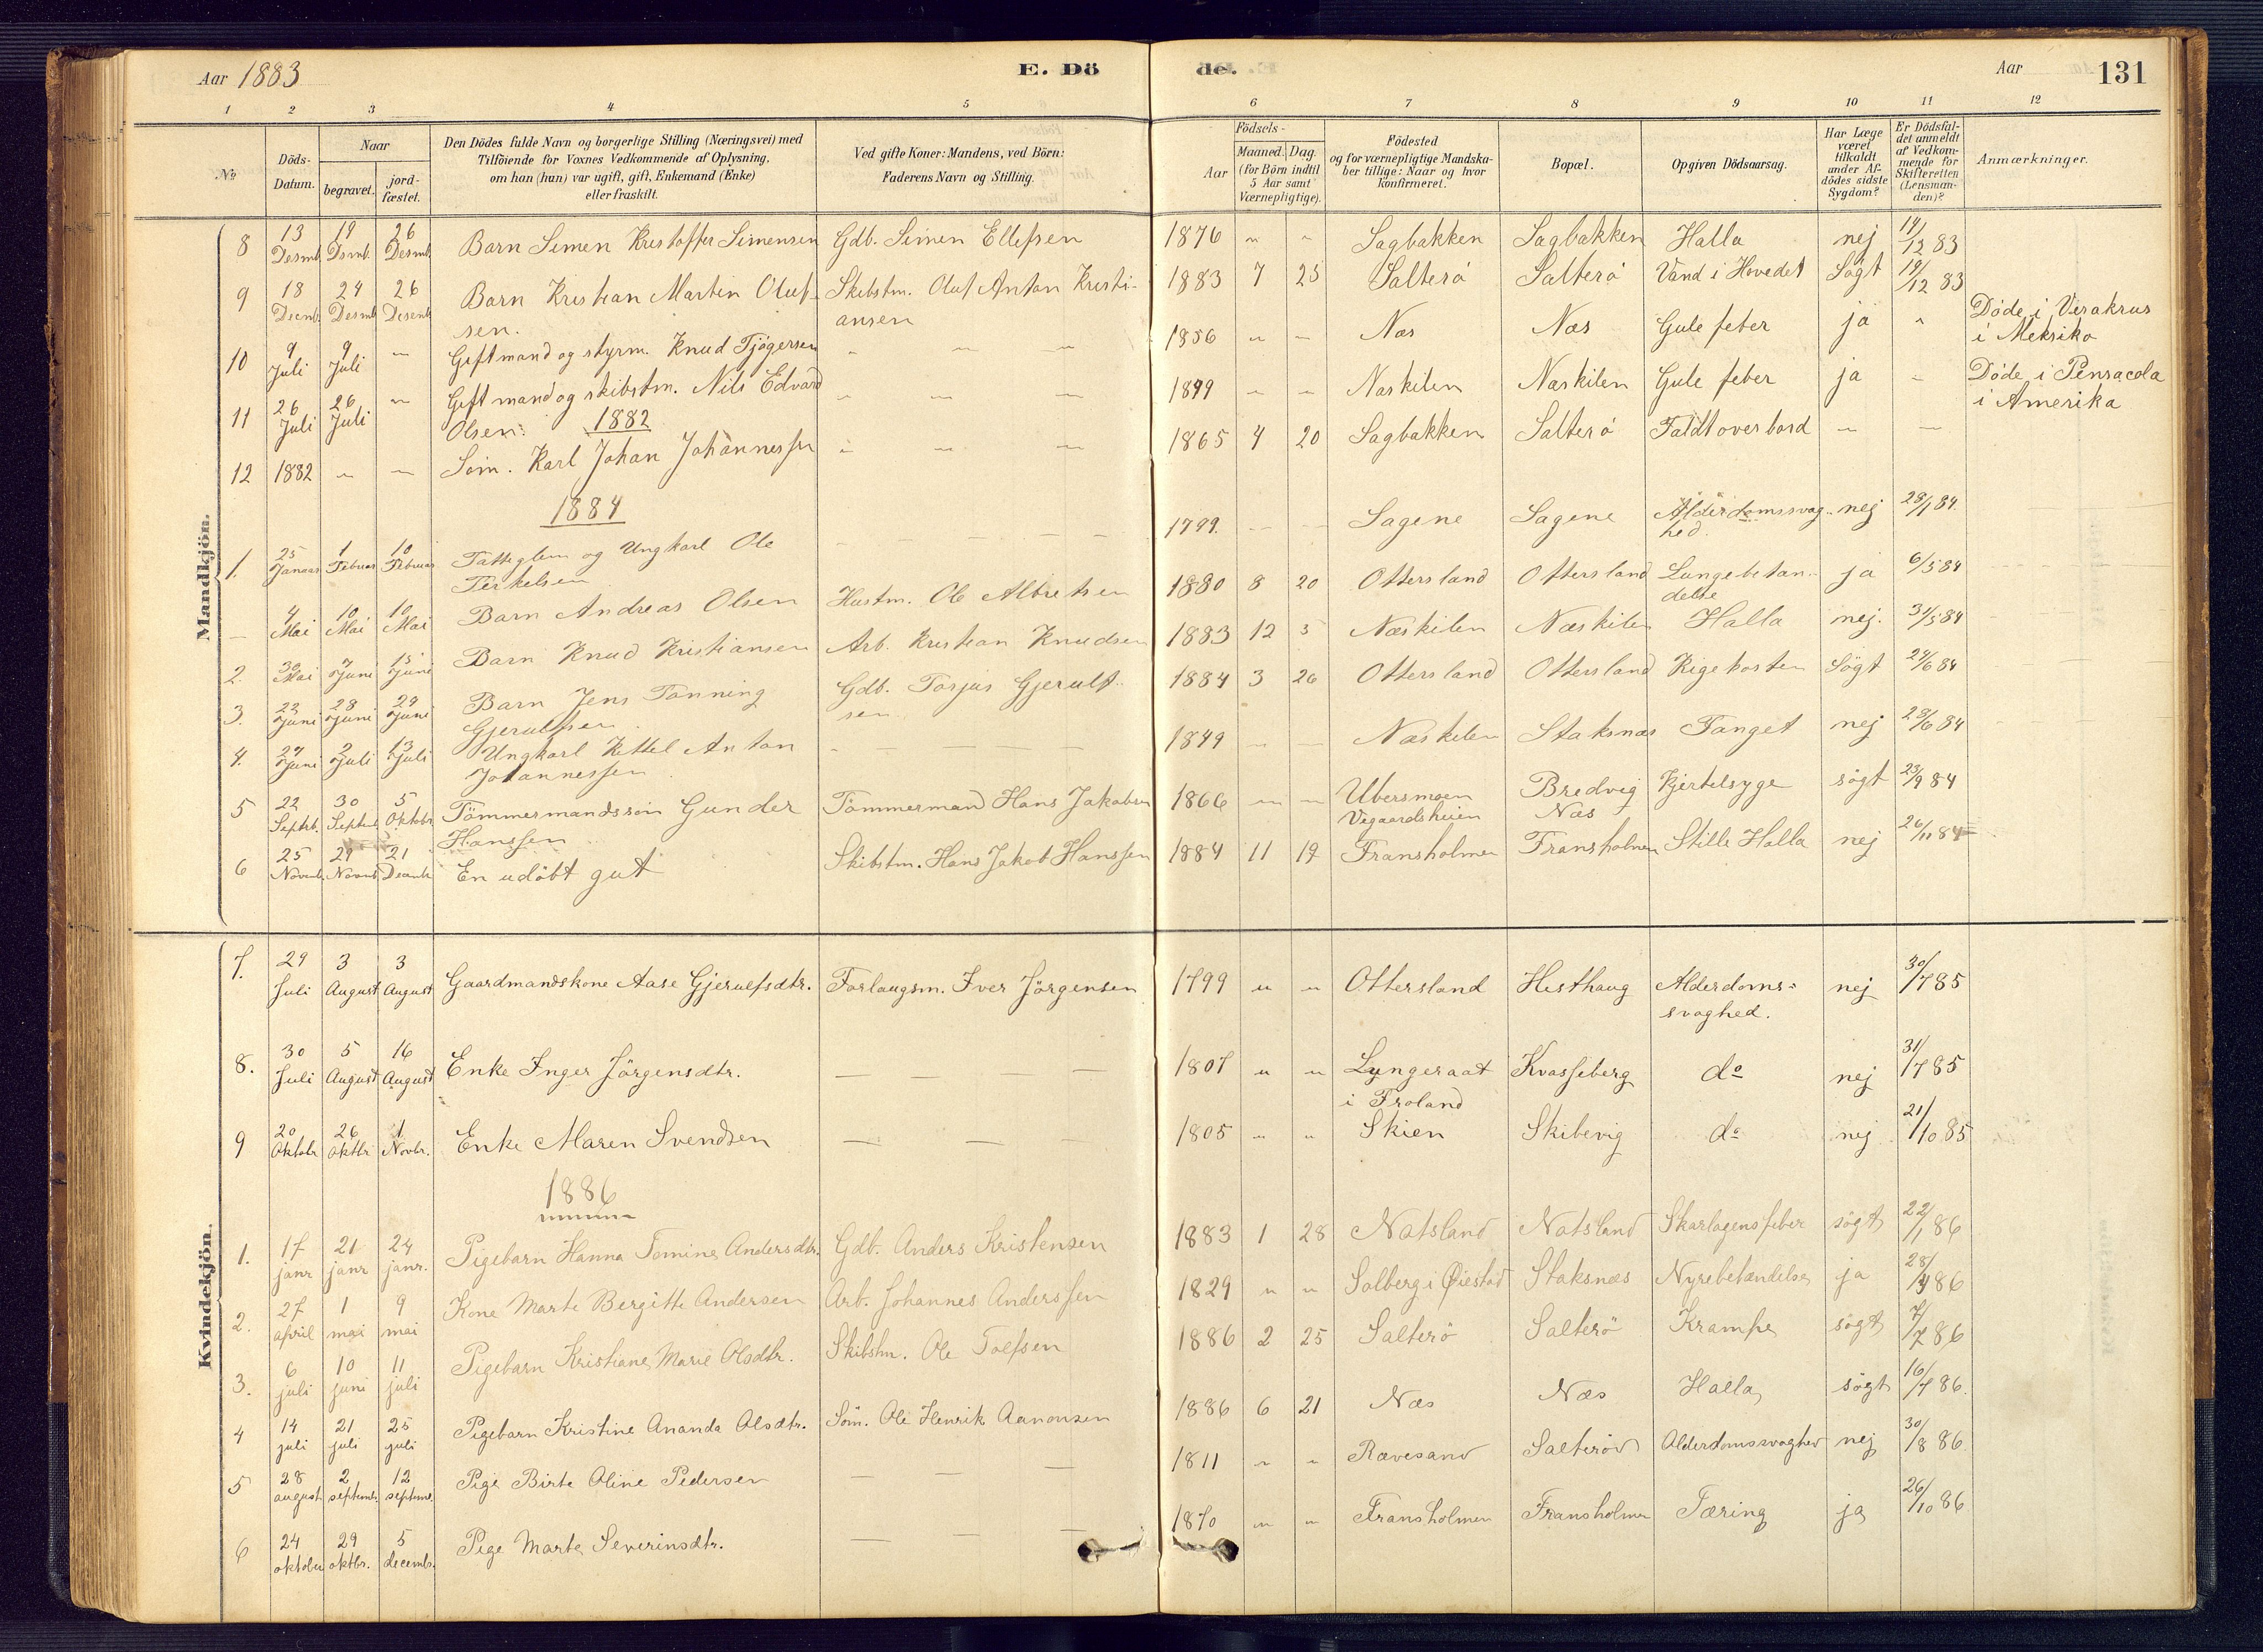 Aar 1883
E. Dö
de.
Aar
131
1 2 3 4 5 6 7 8 9 10 11 12
No
Döds-
Datum.
Naar
begravet.
jord-
fæstet.
Den Dödes fulde Navn og borgerlige Stilling (Næringsvei) med
Tilföiende for Voxnes Vedkommende af Oplysning,
om han (hun) var ugift, gift, Enkemand (Enke)
eller fraskilt.
Ved gifte Koner: Mandens, ved Börn:
Faderens Navn og Stilling.
Födsels-
Aar
Maaned. Dag.
(for Börn indtil
5 Aar samt
Værnepligtige).
Födested
og for værnepligtige Mandska-
ber tillige: Naar og hvor
konfirmeret.
Bopæl.
Opgiven Dödsaarsag.
Har Læge
været
tilkaldt
under Af-
dödes sidste
Sygdom?
Er Dödsfal-
det anmeldt
af Vedkom-
mende for
Skifteretten
(Lensman-
den)?
Anmærkninger.
Mandkjön.
8 13 Desmb. 19 Dsmb. 26 Desmb. Barn Simen Kristoffer Simensen Gdb. Simen Ellefsen 1876 " " Sagbakken Sagbakken Halla nej 14/12 83
9 18 Decmb. 24 Desmb 26 Desemb. Barn Kristian Martin Oluf- Skibstm. Oluf Anton Kristi- 1883 7 25 Salterö Salterö Vand i Hovedet Sögt 19/12 83
sen. ansen
10 9 Juli 9 Juli — Giftmand og styrm. Knud Tjögersen " — — 1856 " — Næs Næs Gule feber ja " Döde i Verakrus
i Meksiko
11 26 Juli 26 Juli — Giftmand og skibstm. Nils Edvard — — — 1849 — — Næskilen Næskilen Gule feber ja — Döde i Pensacola
Olsen. 1882 i Amerika
12 1882 — — Söm. Karl Johan Johannessen — — — 1865 4 20 Sagbakken Salterö Faldt overbord — —
1884
1. 25 Januar 1 Februar 10 Februar Fattiglem og Ungkarl Ole — — — 1799. — — Sagene Sagene Alderdomssvag- nej 28/1 84.
Terkelsen hed.
— 4 Mai 10 Mai 10 Mai Barn Andreas Olsen Hustm. Ole Albretsen 1880 8 20 Ottersland Ottersland Lungebetæn- ja 6/5 84
delse
2. 30 Mai 7 Juni 15 Juni Barn Knud Kristiansen Arb. Kristian Knudsen 1883 12 5 Næskilen Næskilen Halla nej. 31/5 84
3. 22 Juni 28 Juni 29 Juni Barn Jens Tönning Gdb. Torjus Gjerulf- 1884 3 26 Ottersland Ottersland Kigehosten Sögt 24/6 84
Gjerulfsen sen
4. 27 Juni 2 Juli 13 Juli Ungkarl Kittel Anton — — — 1849 — — Næskilen Staksnæs Fanget nej 28/6 84
Johannessen
5 22 Septbr. 30 Septemb 5 Oktobr. Tömmermandssön Gunder Tömmermand Hans Jakobsen 1866 — — Ubersmoen Bredvig Kjertelsyge sögt 23/9 84
Hanssen Vegaardsheien Næs
6 25 Novemb. 29 Novmb 21 Decmb En udöbt gut Skibstm. Hans Jakob Hanssen 1884 11 19 Fransholmen Fransholmen Stille Halla nej 26/11 84
Kvindekjön.
7. 29 Juli 3 August 3 August Gaardmandskone Aase Gjerulfsdtr. Forlaugsm. Iver Jörgensen 1799 " " Ottersland Hesthaug Alderdoms- nej 30/7 85
svaghed.
8. 30 Juli 5 August 16 August Enke Inger Jörgensdtr. — — — 1807 " " Lyngeraat Kvasseberg do nej 31/7 85
i Froland
9 20 Oktobr 26 Oktbr 1 Novbr. Enke Maren Svendsen — — — 1805 " " Skien Skibevig do nej 21/10 85
1886
1. 17 janr 21 janr 24 janr. Pigebarn Hanna Tomine Andersdtr. Gdb. Anders Kristensen 1883 1 28 Natsland Natsland Skarlagensfeber sögt 22/1 86
2. 27 april 1 mai 9 mai Kone Marte Bergitte Andersen Arb. Johannes Anderssen 1829 " " Solberg i Öiestad Staksnæs Nyrebetændelse ja 28/4 86
3. 6 juli 10 juni 11 juli Pigebarn Kristiane Marie Olsdtr. Skibstm. Ole Tolfsen 1886 2 25 Salterö Salterö Krampe sögt 7/7 86
4 14 juli 21 juli 25 juli Pigebarn Kristine Ananda Olsdtr. Söm. Ole Henrik Aanonsen 1886 6 21 Næs Næs Halla sögt 16/7 86.
5 28 august 2 septemb. 12 septemb. Pige Birte Oline Pedersen — — — 1811 " " Rævesand Salteröd Alderdomssvaghed nej 30/8 86
6 24 oktober 29 oktbr. 5 decemb. Pige Marte Severinsdtr. — — — 1870 " " Fransholmen Fransholmen Tæring ja 26/10 86